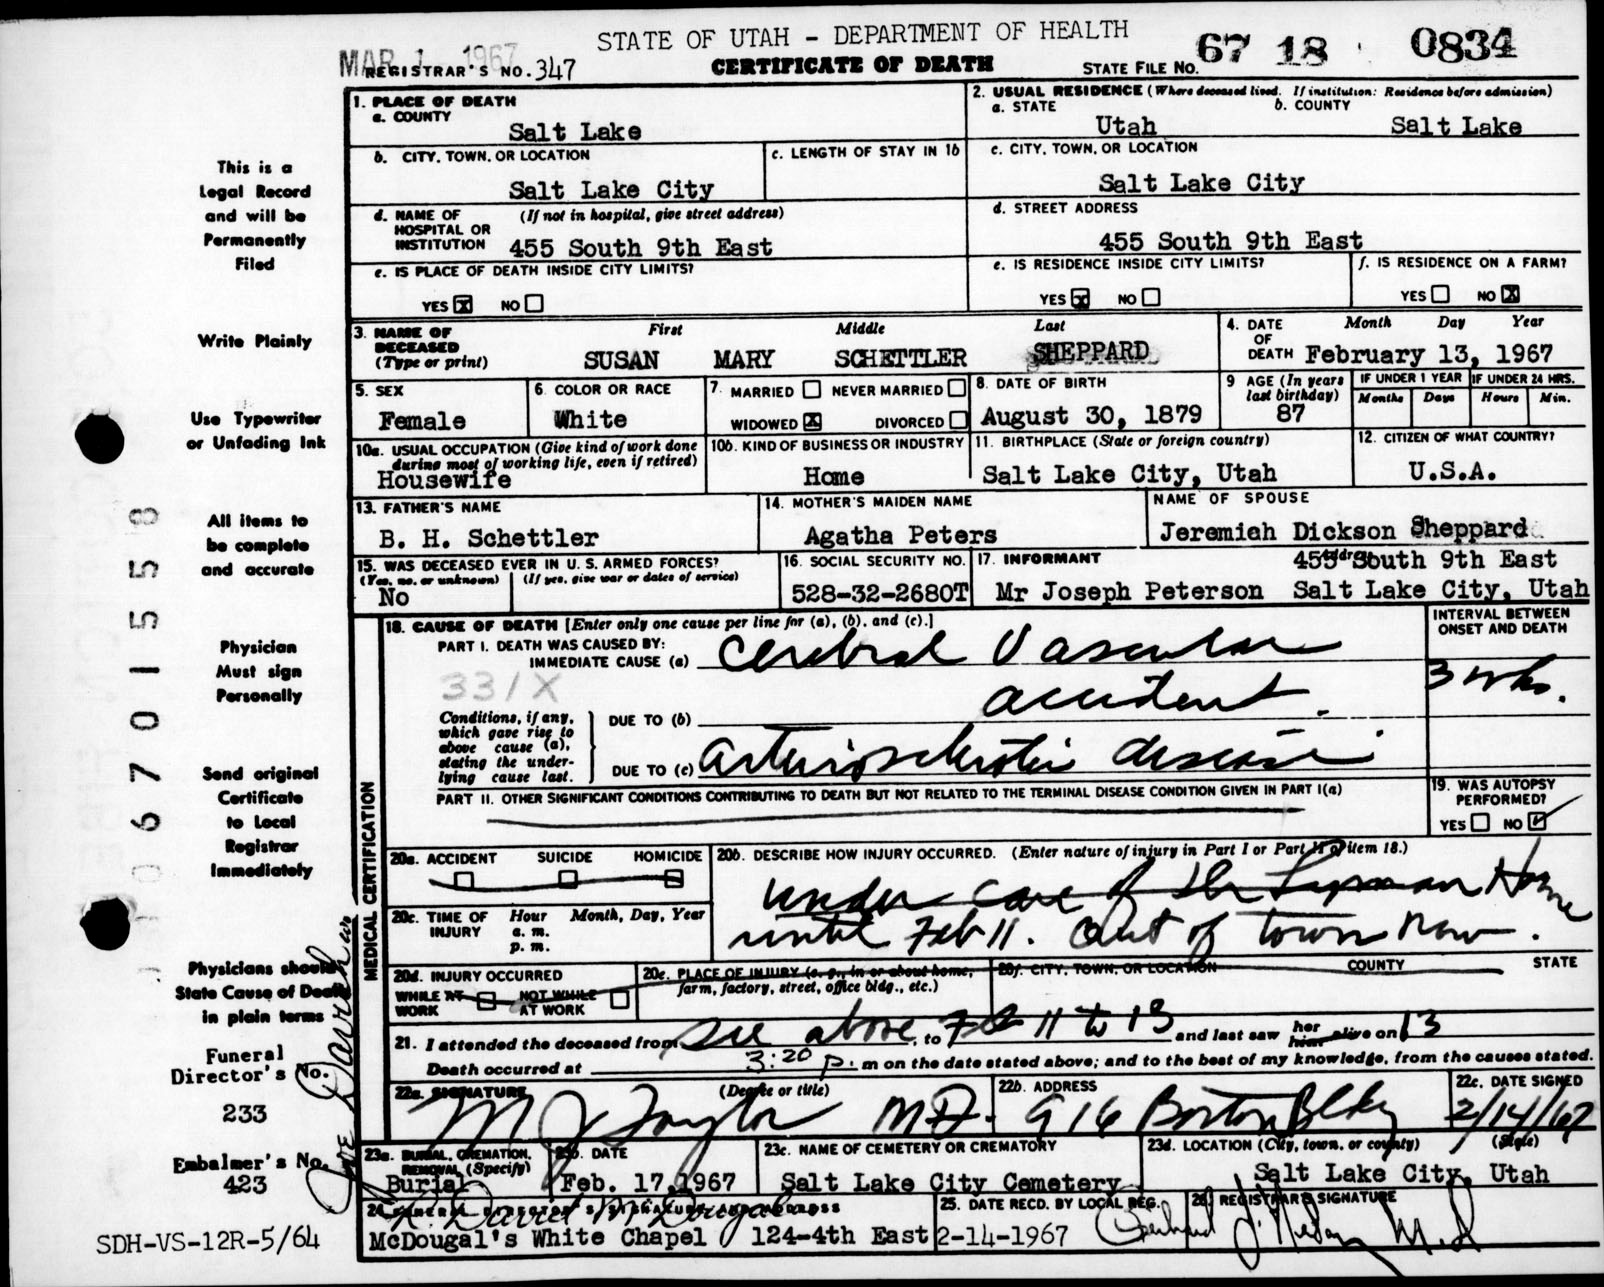 STATE OF UTAH - DEPARTMENT OF HEALTH
MAR 1 1967
REGISTRAR'S NO. 347
CERTIFICATE OF DEATH
STATE FILE NO. 67 18 0834
1. PLACE OF DEATH
a. COUNTY
Salt Lake
2. USUAL RESIDENCE (Where deceased lived. If institution: Residence before admission)
a. STATE
b. COUNTY
Utah
Salt Lake
b. CITY, TOWN, OR LOCATION
Salt Lake City
c. LENGTH OF STAY IN 1b
c. CITY, TOWN, OR LOCATION
Salt Lake City
d. NAME OF HOSPITAL OR INSTITUTION
(If not in hospital, give street address)
455 South 9th East
d. STREET ADDRESS
455 South 9th East
e. IS PLACE OF DEATH INSIDE CITY LIMITS?
YES X NO
e. IS RESIDENCE INSIDE CITY LIMITS?
YES X NO
f. IS RESIDENCE ON A FARM?
YES NO X
3. NAME OF DECEASED (Type or print)
First Middle Last
SUSAN MARY SCHETTLER SHEPPARD
4. DATE OF DEATH
Month Day Year
February 13, 1967
5. SEX
Female
6. COLOR OR RACE
White
7. MARRIED NEVER MARRIED
WIDOWED X DIVORCED
8. DATE OF BIRTH
August 30, 1879
9 AGE (In years last birthday)
87
IF UNDER 1 YEAR
Months Days
IF UNDER 24 HRS.
Hours Min.
10a. USUAL OCCUPATION (Give kind of work done during most of working life, even if retired)
Housewife
10b. KIND OF BUSINESS OR INDUSTRY
Home
11. BIRTHPLACE (State or foreign country)
Salt Lake City, Utah
12. CITIZEN OF WHAT COUNTRY?
U.S.A.
13. FATHER'S NAME
B. H. Schettler
14. MOTHER'S MAIDEN NAME
Agatha Peters
NAME OF SPOUSE
Jeremiah Dickson Sheppard
15. WAS DECEASED EVER IN U. S. ARMED FORCES?
(Yes, no, or unknown) (If yes, give war or dates of service)
No
16. SOCIAL SECURITY NO.
528-32-2680T
17. INFORMANT
Address
455 South 9th East
Mr Joseph Peterson Salt Lake City, Utah
18. CAUSE OF DEATH [Enter only one cause per line for (a), (b), and (c).]
INTERVAL BETWEEN ONSET AND DEATH
PART I. DEATH WAS CAUSED BY:
IMMEDIATE CAUSE (a) Cerebral Vascular
331X
accident.
3 wks.
Conditions, if any, which gave rise to above cause (a), stating the underlying cause last.
DUE TO (b)
DUE TO (c) Arteriosclerotic disease
PART II. OTHER SIGNIFICANT CONDITIONS CONTRIBUTING TO DEATH BUT NOT RELATED TO THE TERMINAL DISEASE CONDITION GIVEN IN PART I(a)
19. WAS AUTOPSY PERFORMED?
YES NO ✓
MEDICAL CERTIFICATION
20a. ACCIDENT SUICIDE HOMICIDE
20b. DESCRIBE HOW INJURY OCCURRED. (Enter nature of injury in Part I or Part II of item 18.)
under care of Dr
until Feb 11. Out of town now.
20c. TIME OF INJURY
Hour Month, Day, Year
a. m.
p. m.
20d. INJURY OCCURRED
WHILE AT WORK NOT WHILE AT WORK
20e. PLACE OF INJURY (e. g., in or about home, farm, factory, street, office bldg., etc.)
20f. CITY, TOWN, OR LOCATION COUNTY STATE
21. I attended the deceased from see above, to Feb 11 to 13 and last saw her him alive on 13
Death occurred at 3:20 p. m on the date stated above; and to the best of my knowledge, from the causes stated.
22a. SIGNATURE (Degree or title)
M J Taylor M.D.
22b. ADDRESS
916 Boston Bldg
22c. DATE SIGNED
2/14/67
23a. BURIAL, CREMATION, REMOVAL (Specify)
Burial
23b. DATE
Feb. 17, 1967
23c. NAME OF CEMETERY OR CREMATORY
Salt Lake City Cemetery
23d. LOCATION (City, town, or county) (State)
Salt Lake City, Utah
24. FUNERAL DIRECTOR'S SIGNATURE AND ADDRESS
David McDougal
McDougal's White Chapel 124-4th East
25. DATE RECD. BY LOCAL REG.
2-14-1967
26. REGISTRAR'S SIGNATURE
This is a
Legal Record
and will be
Permanently
Filed
Write Plainly
Use Typewriter
or Unfading Ink
All items to
be complete
and accurate
Physician
Must sign
Personally
Send original
Certificate
to Local
Registrar
Immediately
Physicians should
State Cause of Death
in plain terms
Funeral
Director's No.
233
Embalmer's No.
423
SDH-VS-12R-5/64
0 6 7 0 1 5 5 8